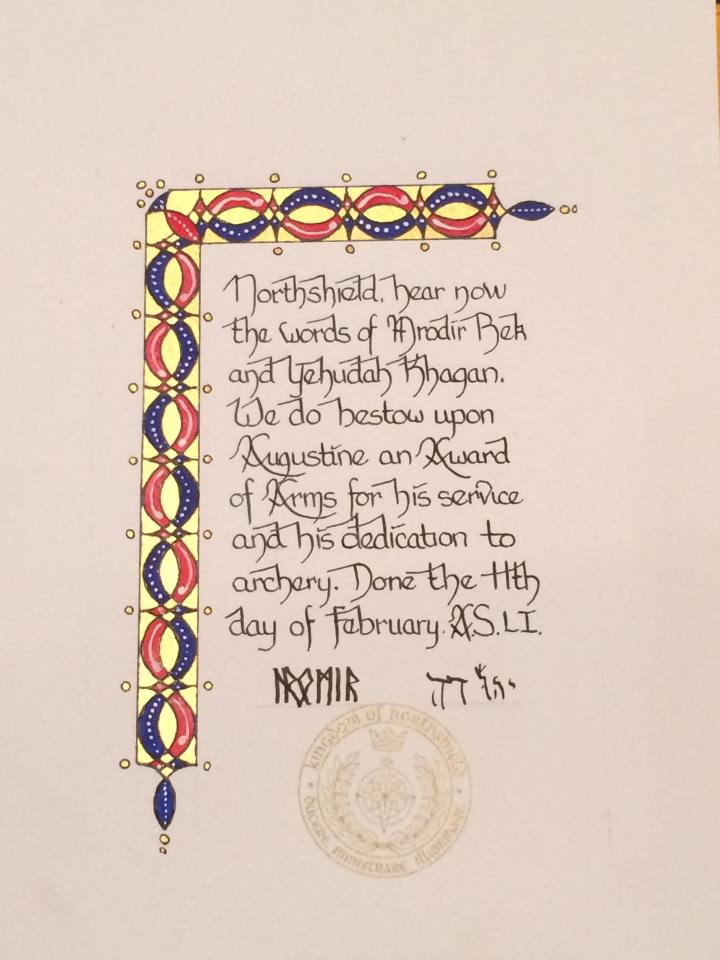 Northshield, hear now
the words of Hrodir Bek
and Yehudah Khagan.
We do bestow upon
Augustine an Award
of Arms for his service
and his dedication to
archery. Done the 11th
day of February. A.S. LI.
ᚺᚱᛟᛞᛁᚱ יהודה
kingdom of northshield
ducere ministrare illuminare